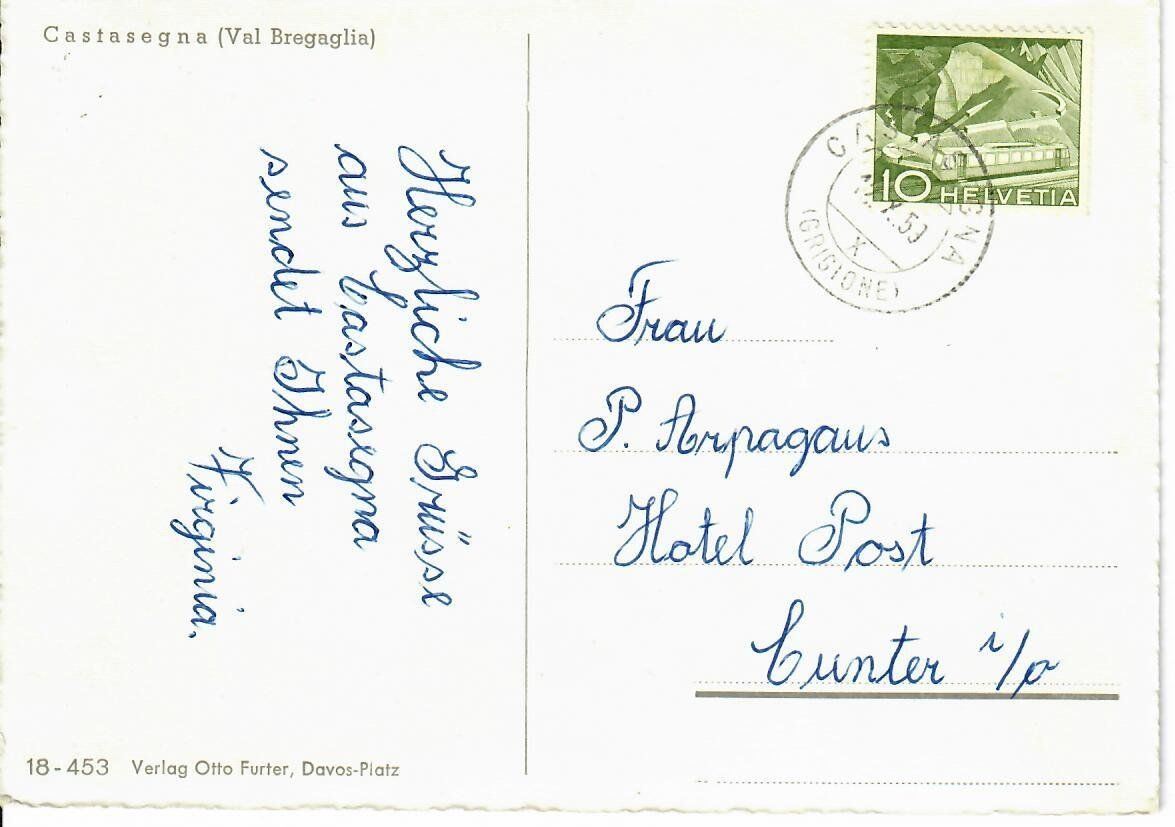 Castasegna (Val Bregaglia)
Herzliche Grüsse
aus Castasegna
sendet Ihnen
Virginia.
18-453 Verlag Otto Furter, Davos-Platz
10 HELVETIA
CASTASEGNA
(GRIGIONE)
Frau
P. Arpagaus
Hotel Post
Cunter i/o